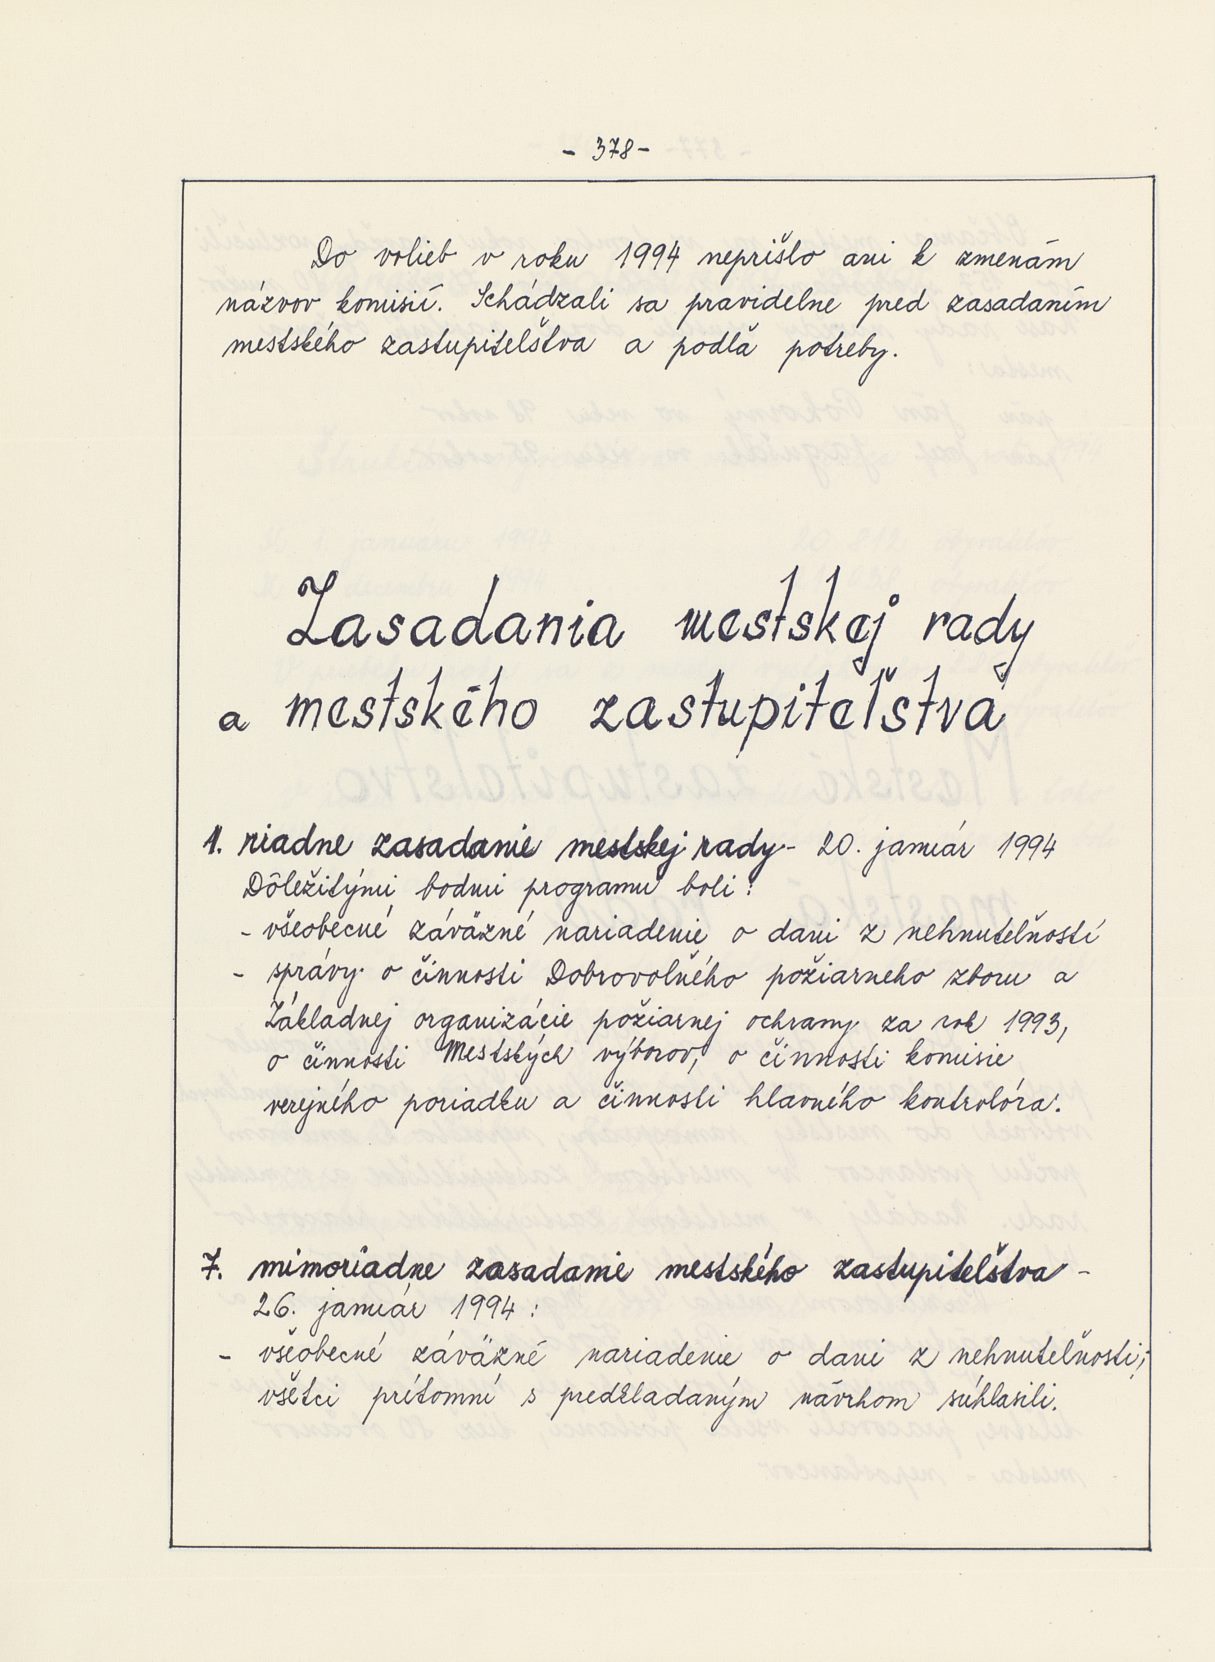 - 378 -
Do volieb v roku 1994 neprišlo ani k zmenám
názvov komisií. Schádzali sa pravidelne pred zasadaním
mestského zastupiteľstva a podľa potreby.
Zasadania mestskej rady
a mestského zastupiteľstva
1. riadne zasadanie mestskej rady - 20. január 1994
Dôležitými bodmi programu boli:
- všeobecné záväzné nariadenie o dani z nehnuteľností
- správy o činnosti Dobrovoľného požiarneho zboru a
Základnej organizácie požiarnej ochrany za rok 1993,
o činnosti Mestských výborov, o činnosti komisie
verejného poriadku a činnosti hlavného kontrolóra.
7. mimoriadne zasadanie mestského zastupiteľstva -
26. január 1994:
- všeobecné záväzné nariadenie o dani z nehnuteľnosti;
všetci prítomní s predkladaným návrhom súhlasili.